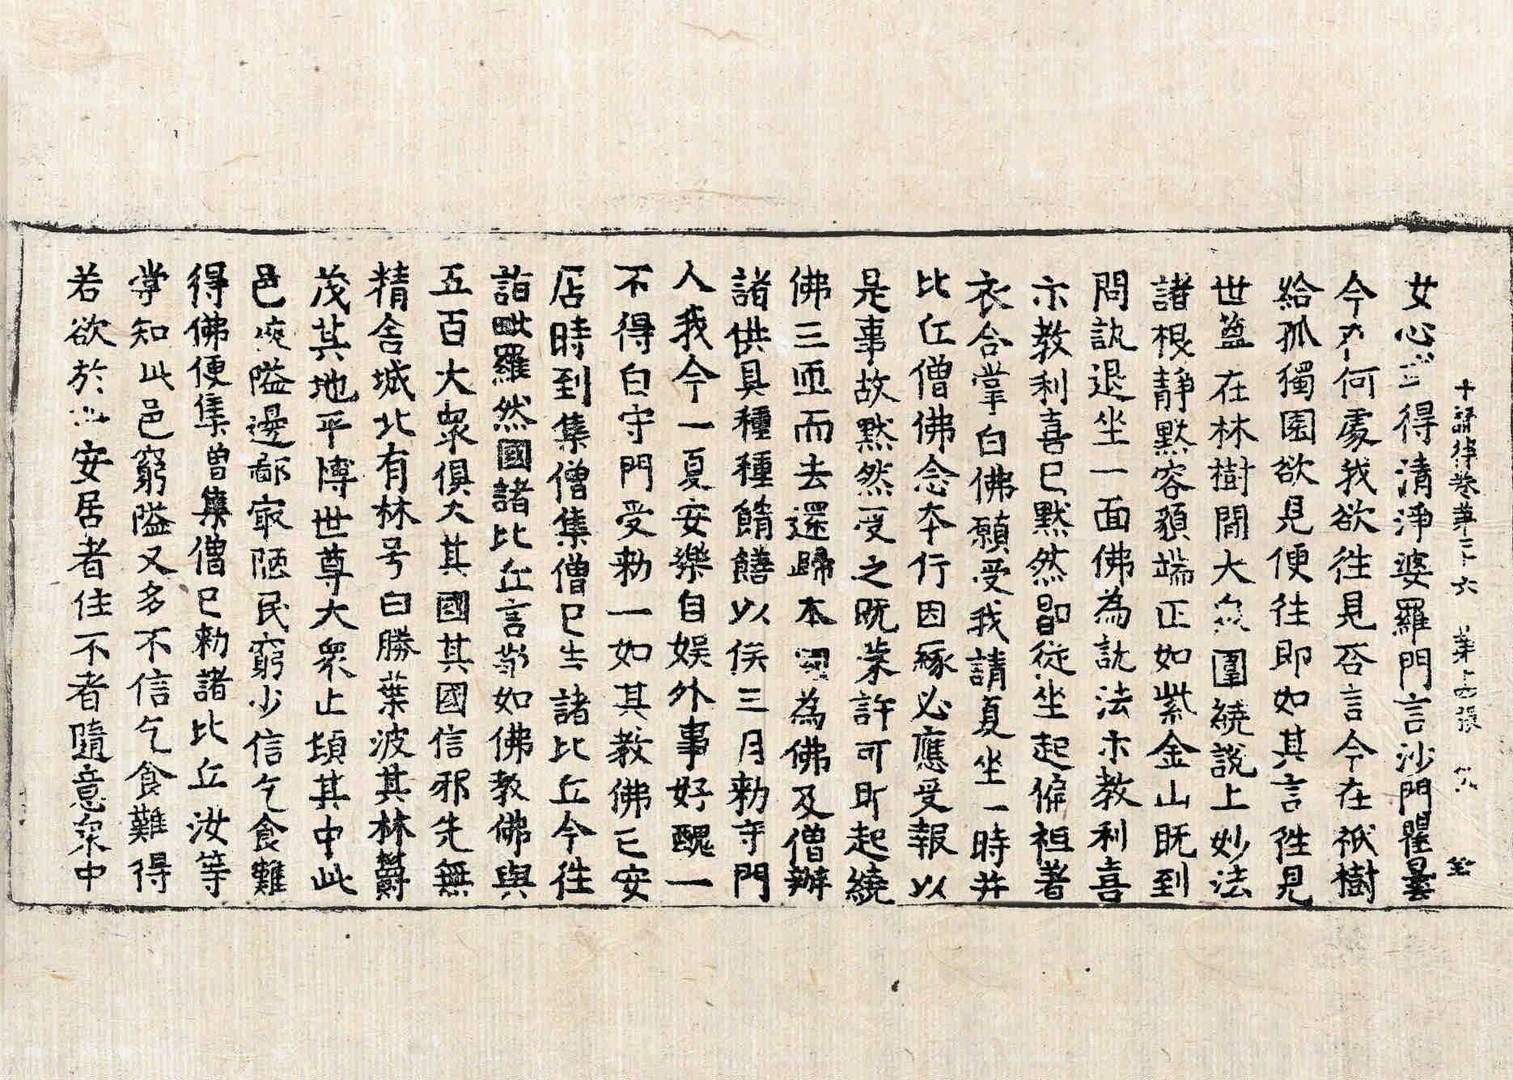 十誦律卷第二十六 第十四張
女心得清淨婆羅門言沙門瞿曇
今在何處我欲往見答言今在祇樹
給孤獨園欲見便往即如其言往見
世尊在林樹間大衆圍繞說上妙法
諸根靜默容貌端正如紫金山既到
問訊退坐一面佛為說法示教利喜
示教利喜已默然即從坐起偏袒著
衣合掌白佛願受我請夏坐一時并
比丘僧佛念本行因緣必應受報以
是事故默然受之既蒙許可即起繞
佛三匝而去還歸本國為佛及僧辦
諸供具種種餚饍以俟三月勅守門
人我今一夏安樂自娱外事好醜一
不得白守門受勅一如其教佛已安
居時到集僧集僧已告諸比丘今往
詣毗羅然國諸比丘言敬如佛教佛與
五百大衆俱入其國其國信邪先無
精舍城北有林号曰勝葉波其林欝
茂其地平博世尊大衆止頓其中此
邑陿隘邊鄙㝡陋民窮少信乞食難
得佛便集僧集僧已勅諸比丘汝等
當知此邑窮隘又多不信乞食難得
若欲於此安居者住不者隨意衆中